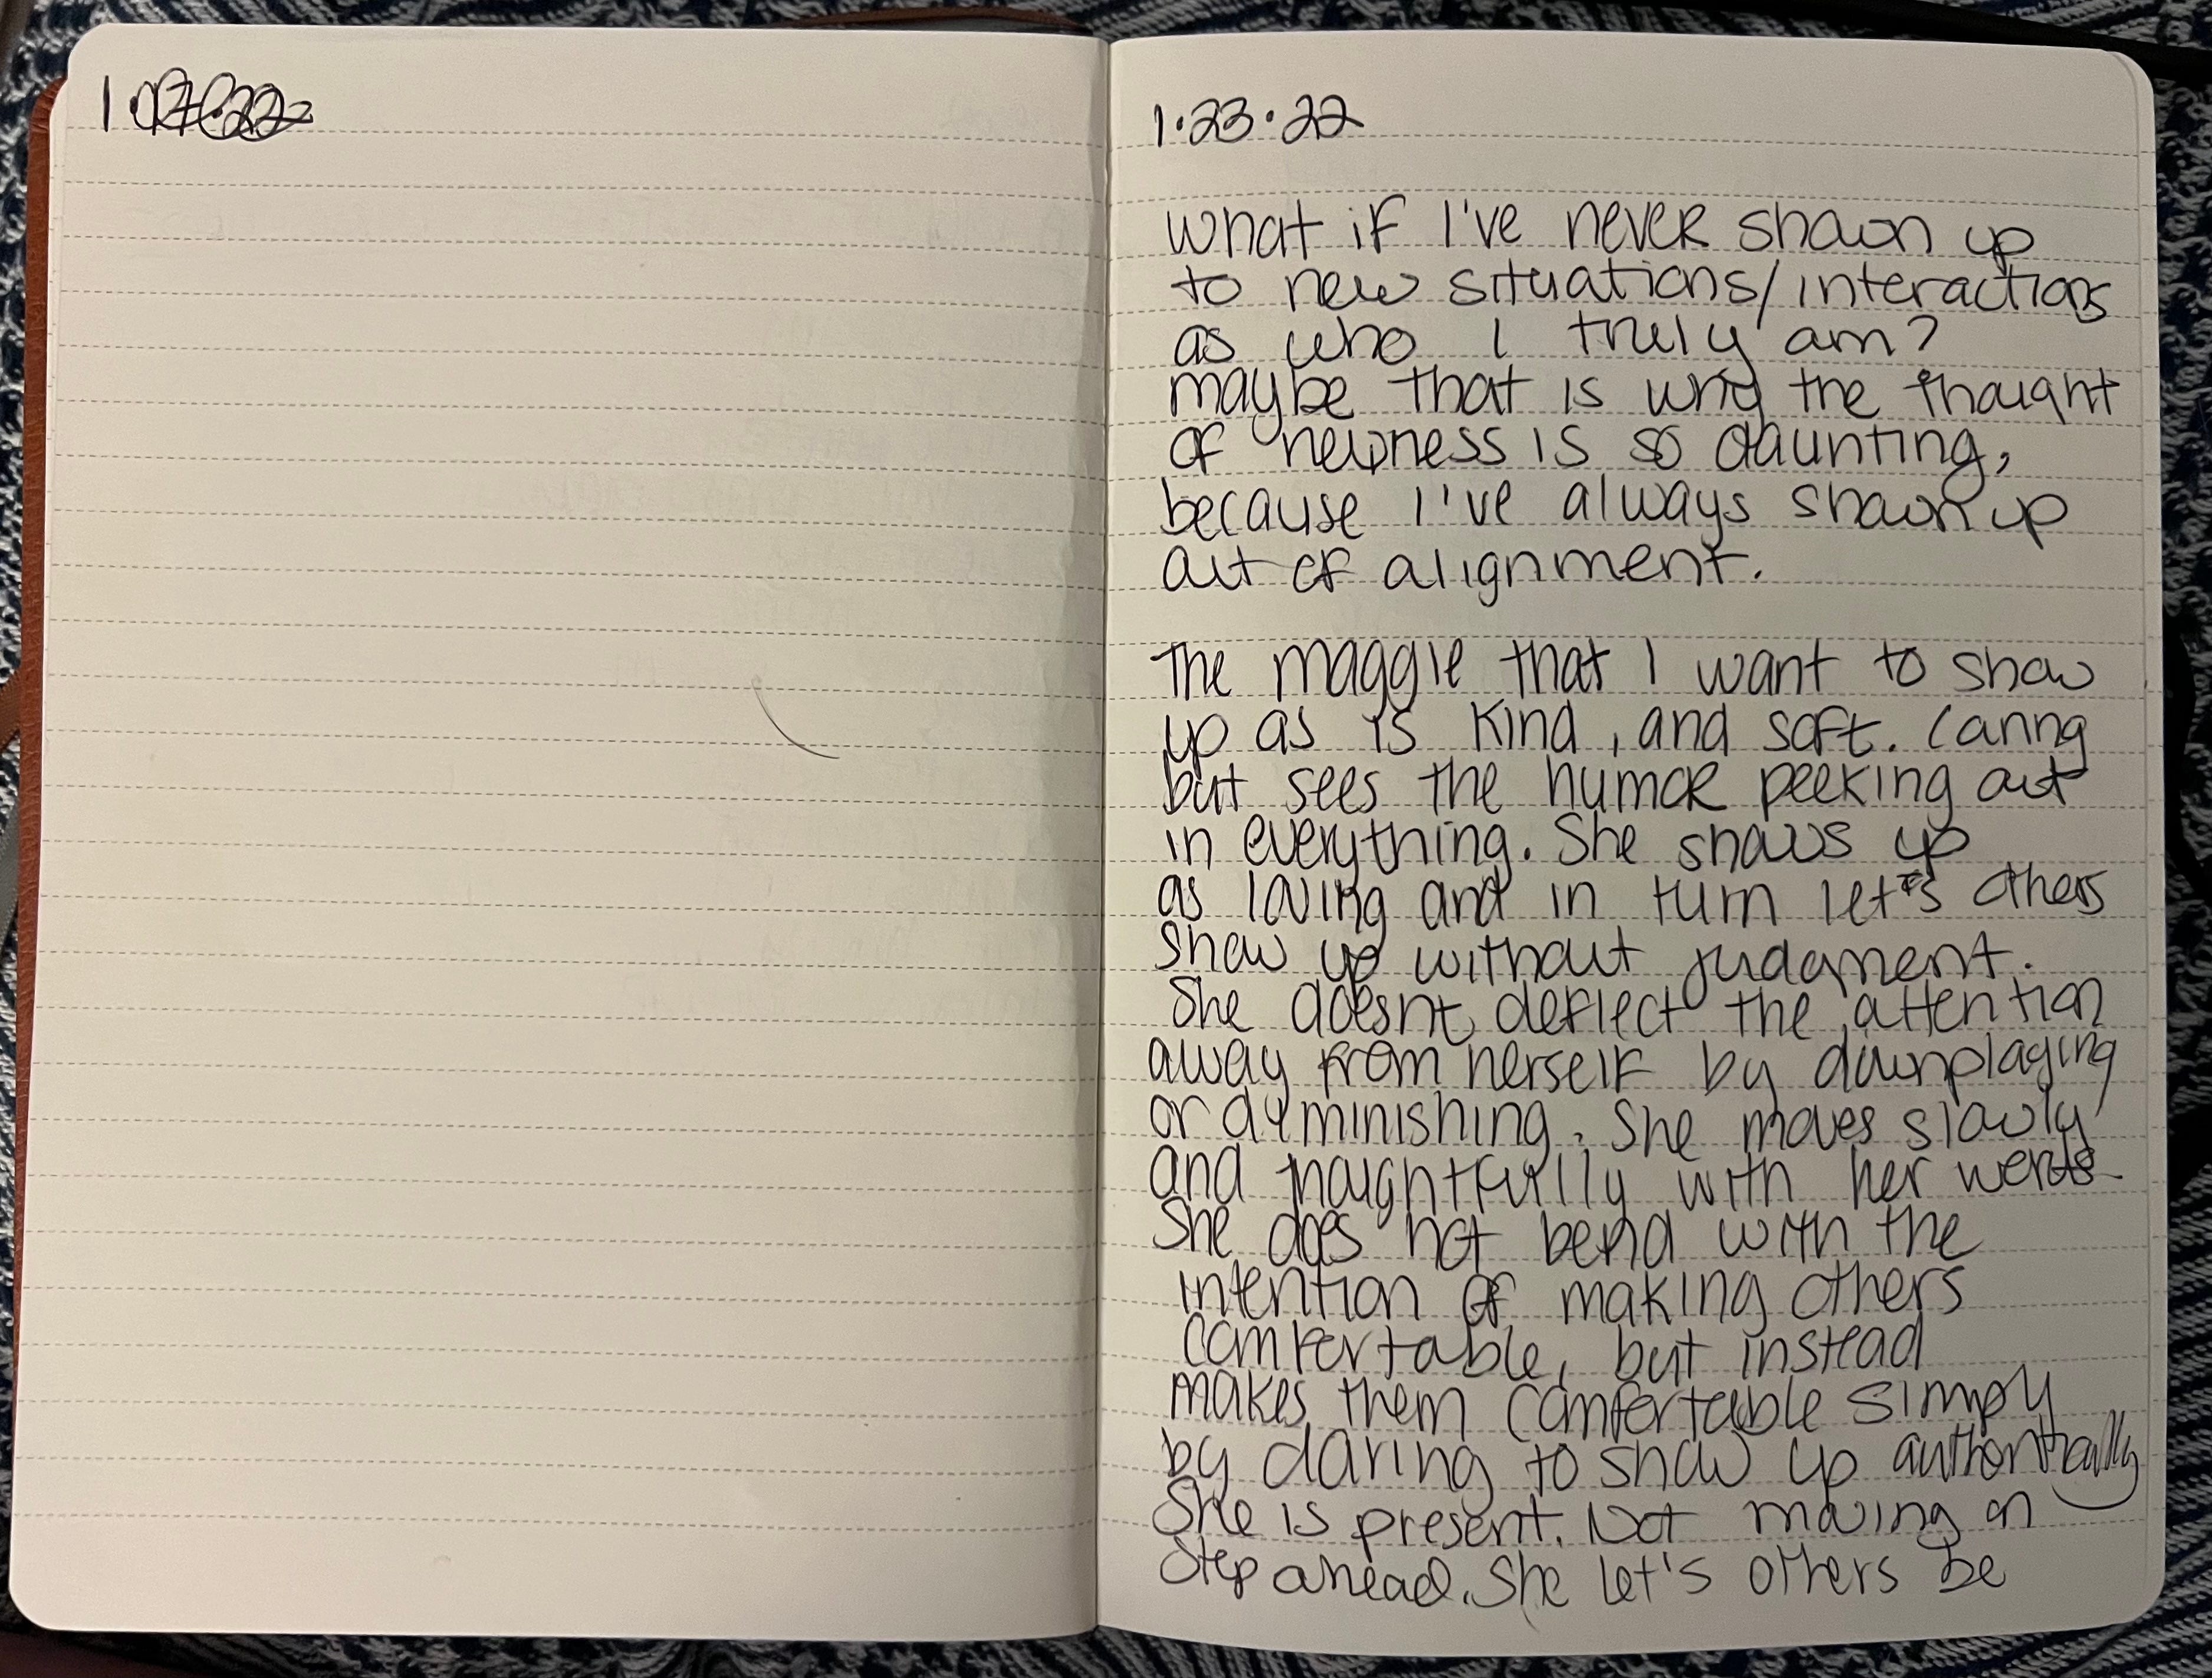 1.23.22
what if I've never shown up
to new situations/interactions
as who I truly am?
maybe that is why the thought
of newness is so daunting,
because I've always shown up
out of alignment.
The maggie that I want to show
up as is kind, and soft. Caring
but sees the humor peeking out
in everything. She shows up
as loving and in turn let's others
show up without judgment.
She doesn't deflect the attention
away from herself by downplaying
or dyminishing. She moves slowly
and thoughtfully with her words
She does not bend with the
intention of making others
comfortable, but instead
makes them comfortable simply
by daring to show up authentically
She is present. Not moving on
step ahead. She let's others be